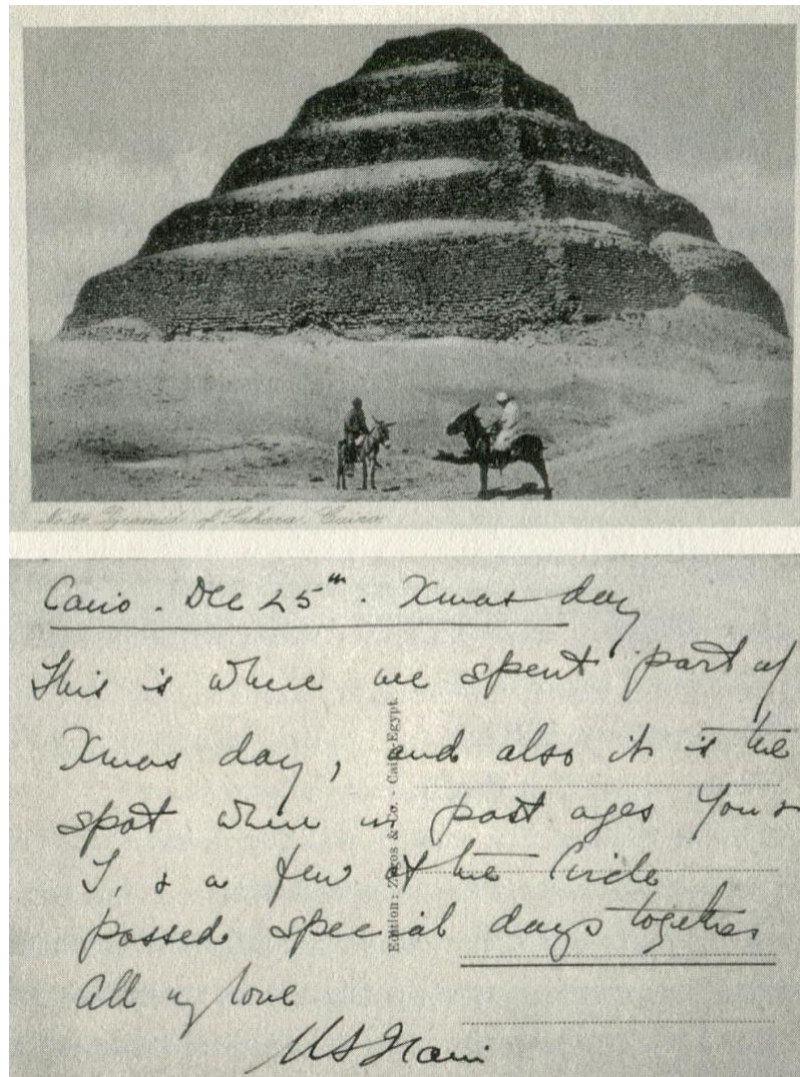 No. 24. Pyramid of Sakara, Cairo
Cairo. Dec 25th. Xmas day
This is where we spent part of
Xmas day, and also it is the
spot where in past ages you &
I, & a few of the Circle
passed special days together
All my love
Edition: Zogos & Co. - Cairo-Egypt.